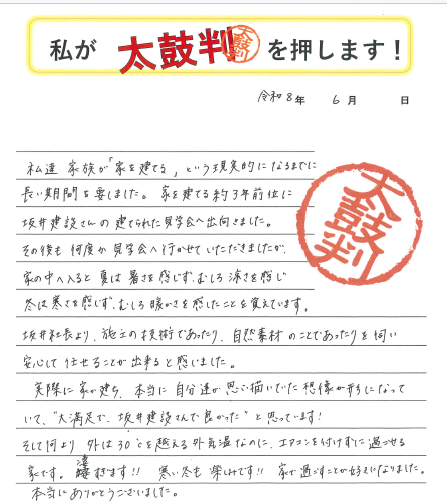 私が 太鼓判 太鼓判 を押します！
令和8年 6月 日
私達 家族が「家を建てる」という現実的になるまでに
長い期間を要しました。家を建てる約3年前位に
坂井建設さんの建てられた見学会へ出向きました。
その後も何度か見学会へ行かせていただきましたが、
家の中へ入ると夏は暑さを感じず、むしろ涼さを感じ
冬は寒さを感じず、むしろ暖かさを感じたことを覚えています。
坂井社長より、施工の技術であったり、自然素材のことであったりを伺い
安心して任せることが出来ると感じました。
実際に家が建ち、本当に自分達が思い描いていた想像が形になって
いて、"大満足で、坂井建設さんで良かった"と思っています!
そして何より 外は30℃を越える外気温なのに、エアコンを付けずに過ごせる
家です。凄すぎます!! 寒い冬も楽しみです!! 家で過ごすことが好きになりました。
本当にありがとうございました。
太鼓判